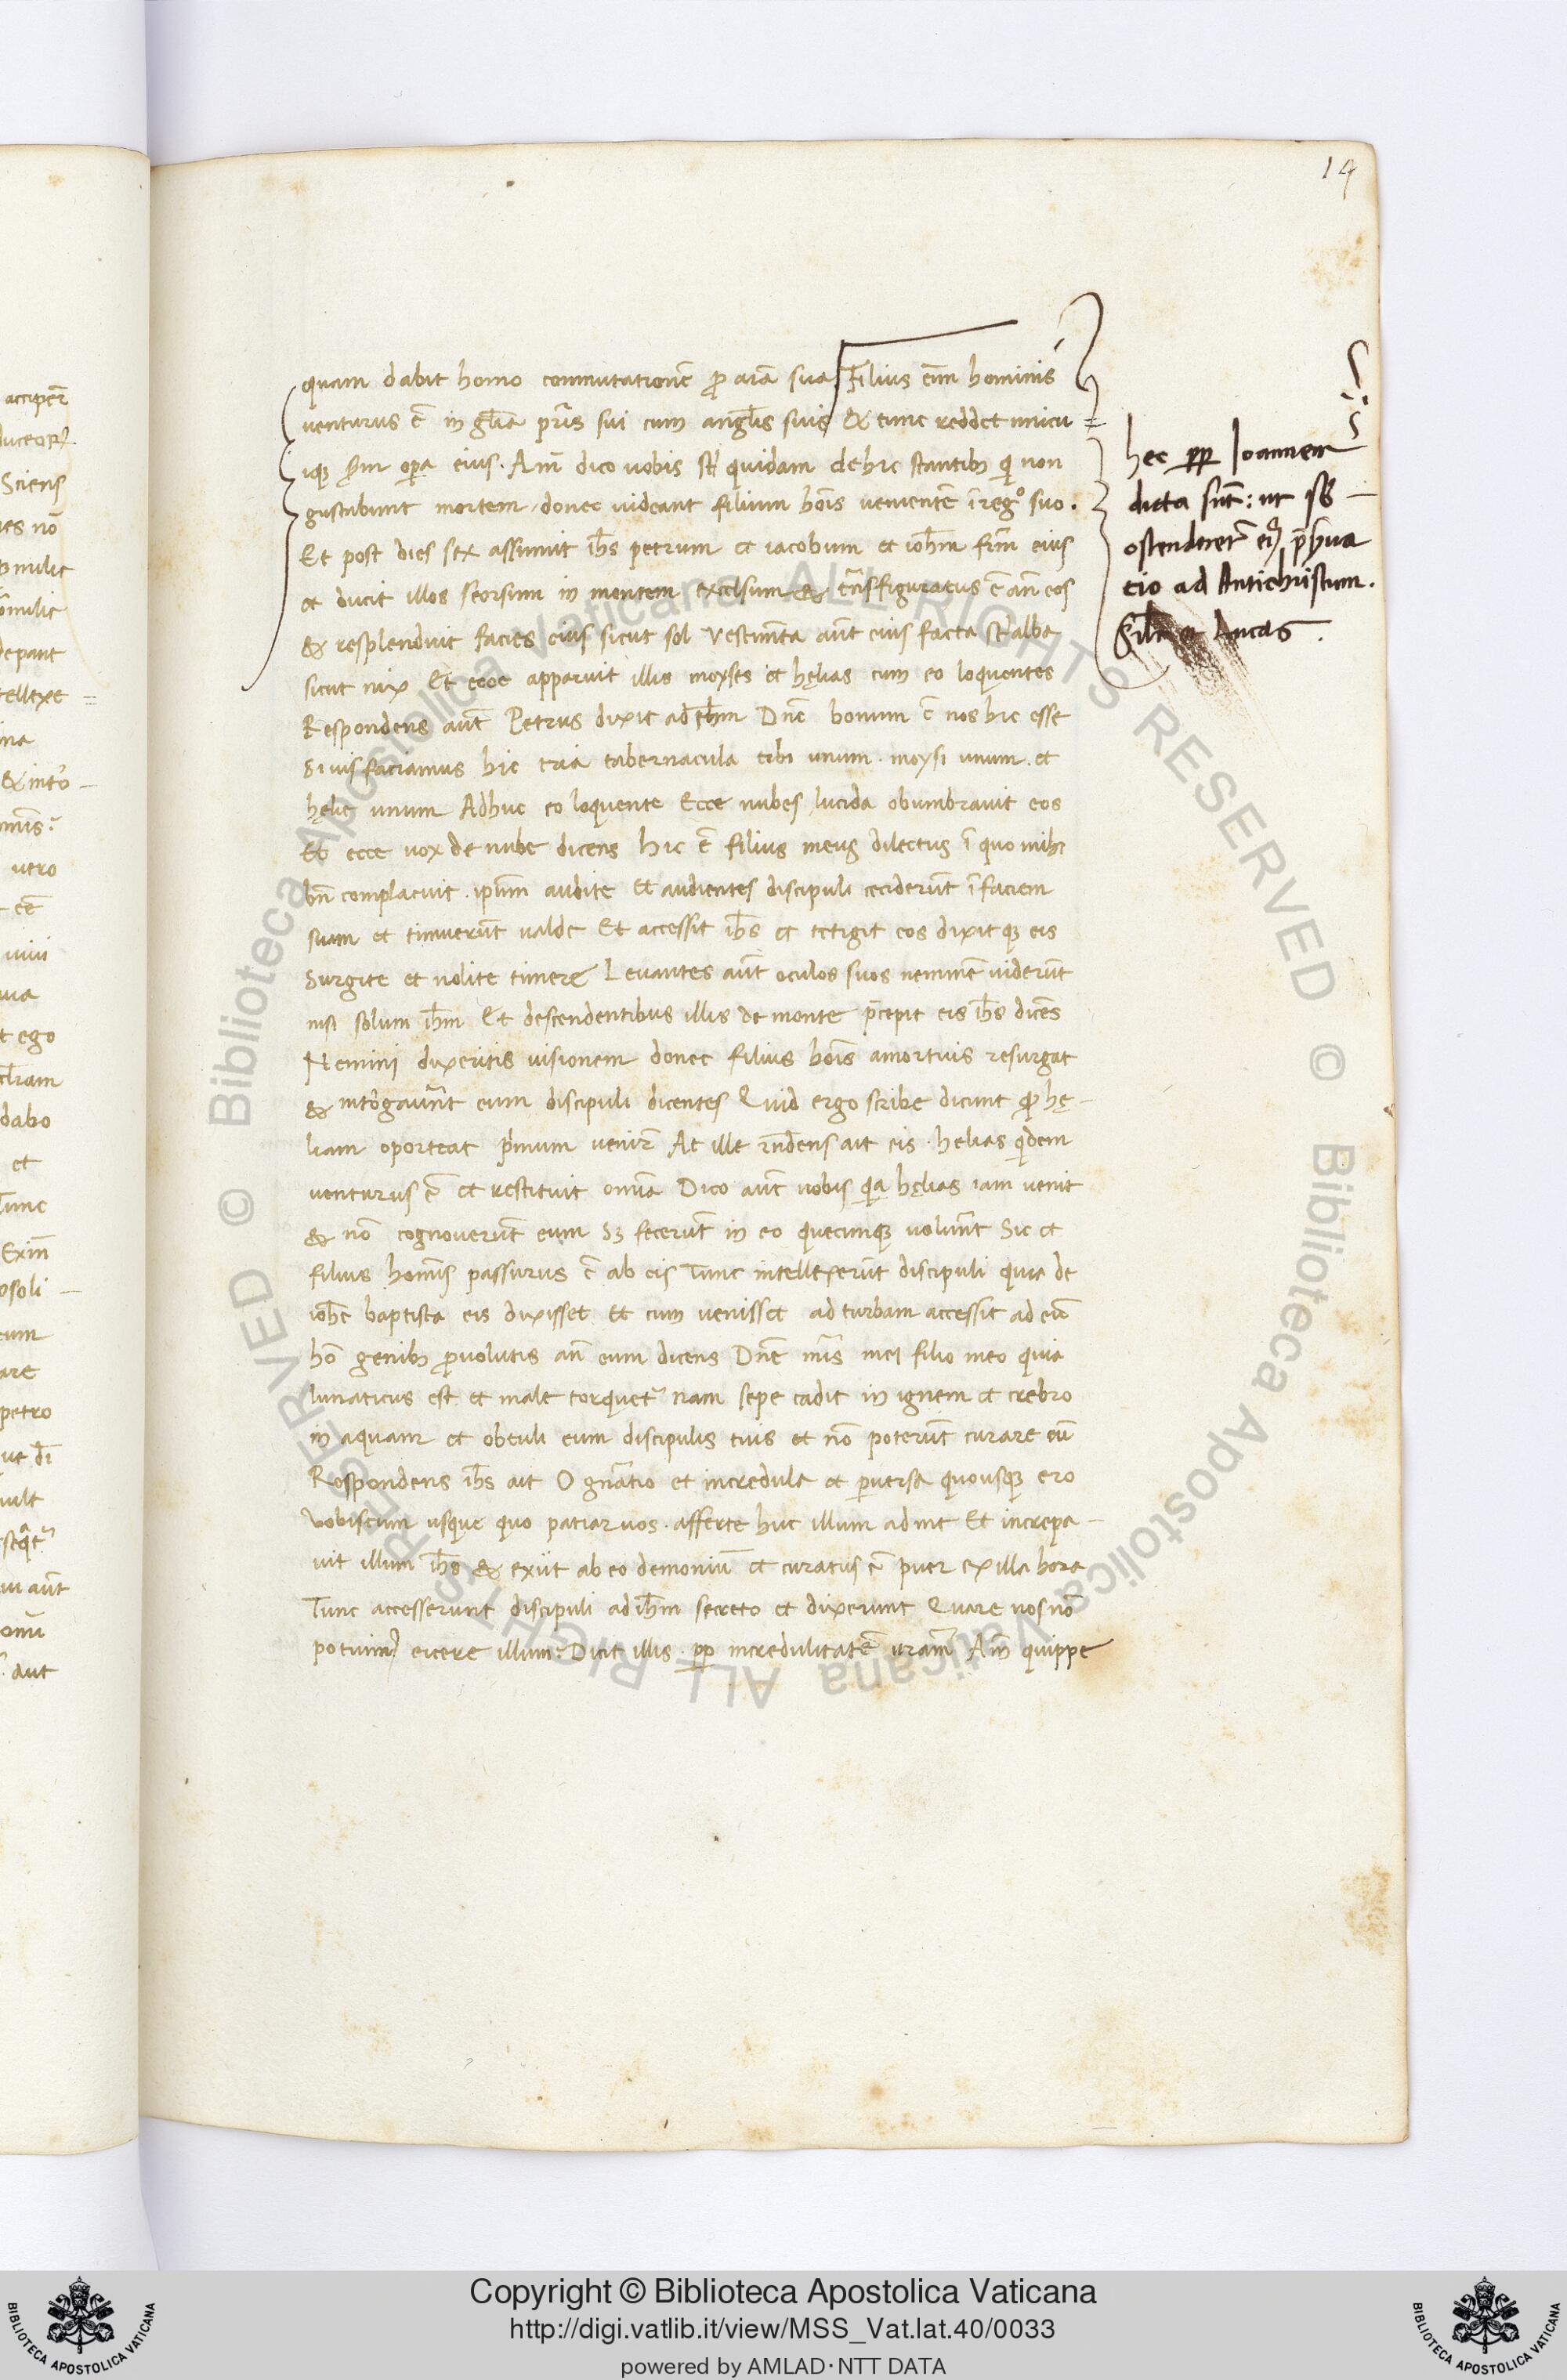 14
quam dabit homo commutationē ꝓ aīa sua Filius enī hominis
venturus ē in gl̄ia pr̄is sui cum angl̄is suis & tunc reddet unicu =
iqꝫ ẜm oꝑa eius. Am̄ dico uobis st̄ quidam de hic stantibꝫ qi non
gustabunt mortem / donec uideant filium hōis uenientē ī regº suo.
Et post dies sex assumit ih̄s petrum et iacobum et ioh̄m fr̄m eius
et ducit illos seorsum in montem excelsum & trāsfiguratus ē an̄ eos
& resplenduit facies eius sicut sol Vestim̄ta aūt eius facta st̄ alba
sicut nix Et ecce apparuit illis moyses et hęlias cum eo loquentes
Respondens aūt Petrus dixit ad ih̄m Dn̄e bonum ē nos hic esse
Si uis faciamus hic tria tabernacula tibi unum. moysi unum. et
hęlię unum Adhuc eo loquente Ecce nubes lucida obumbravit eos
Et ecce uox de nube dicens hic ē filius meus dilectus ī quo mihi
bn̄ complacuit. ipsum audite Et audientes discipuli ceciderūt ī faciem
suam et timuerūt ualde Et accessit ih̄s et tetigit eos dixitqꝫ eis
Surgite et nolite timere Levantes aūt oculos suos neminē uiderūt
nisi solum ih̄m Et descendentibus illis de monte p̄cepit eis ih̄s dicēs
Nemini dixeritis visionem donec filius hōis amortuis resurgat
& int̄ogaur̄nt eum discipuli dicentes Quid ergo scribe dicunt ꝙ hę -
liam oporteat pimum venir̄ At ille rn̄dens ait eis. helias qidem
venturus ē et restituit omīa Dico aūt uobis qia hęlias iam venit
& nō cognoverūt eum Sꝫ fecerūt in eo quecunqꝫ volur̄nt Sic et
filius homīs passurus ē ab eis Tunc intellexerūt discipuli quia de
ioh̄e baptista eis dixisset Et cum venisset ad turbam accessit ad eū
hō genibꝫ ꝓvolutis an̄ eum dicens Dn̄e mis̄ mei filio meo quia
lunaticus est et male torquet᷑ nam sepe cadit in ignem et crebro
in aquam et obtuli eum discipulis tuis et nō poterūt curare eū
Respondens ih̄s ait O gn̄ratio et incredula et ꝑuersa quousqꝫ ero
vobiscum usque quo patiar uos. afferte huc illum ad me Et increpa -
uit illum ih̄s & exiit ab eo demoniū et curatus ē puer ex illa hora
Tunc accesserunt discipuli ad ih̄m secreto et dixerunt Quare nos nō
potuimꝰ eicere illum? Dicit illis. ꝓp incredulitatē uram̄ Am̄ quippe
hec ꝓp Ioannem
dicta sūt: ut
ostenderet᷑ eiꝰ
cio ad Antichristum.
Lucas.
acciper̄
Sciens
nes nō
depant
tellexe =
& int̄o -
mīs?
utro
t ego
dabo
et
Tunc
Exin̄
are
petro
aūt
aut
Copyright © Biblioteca Apostolica Vaticana
http://digi.vatlib.it/view/MSS_Vat.lat.40/0033
powered by AMLAD·NTT DATA
BIBLIOTECA APOSTOLICA VATICANA
BIBLIOTECA APOSTOLICA VATICANA
© Biblioteca Apostolica Vaticana ALL RIGHTS RESERVED © Biblioteca Apostolica Vaticana ALL RIGHTS RESERVED